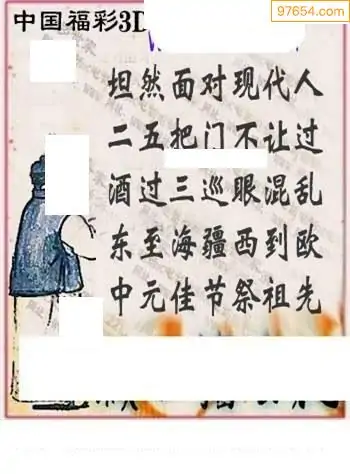 97654.com
中国福彩3D
坦然面对现代人
二五把门不让过
酒过三巡眼混乱
东至海疆西到欧
中元佳节祭祖先